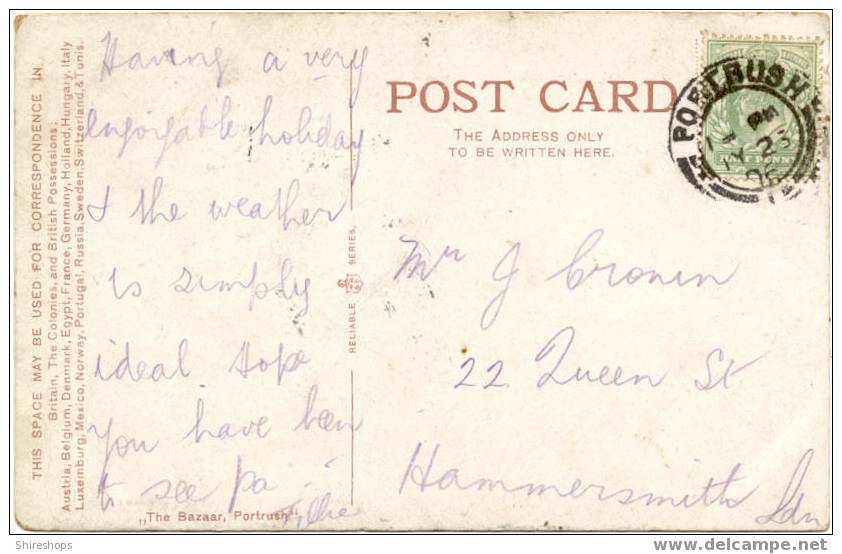 THIS SPACE MAY BE USED FOR CORRESPONDENCE IN
Britain, The Colonies, and British Possessions;
Austria, Belgium, Denmark, Egypt, France, Germany, Holland, Hungary, Italy
Luxemburg, Mexico, Norway, Portugal, Russia, Sweden, Switzerland, & Tunis.
Having a very
enjoyable holiday
& the weather
is simply
ideal Hope
you have been
to see pa
„The Bazaar, Portrush"
RELIABLE SERIES.
POST CARD
THE ADDRESS ONLY
TO BE WRITTEN HERE.
PORTRUSH
23
HALF PENNY
Mr J Cronin
22 Queen St
Hammersmith Ldn
Shireshops
www.delcampe.net